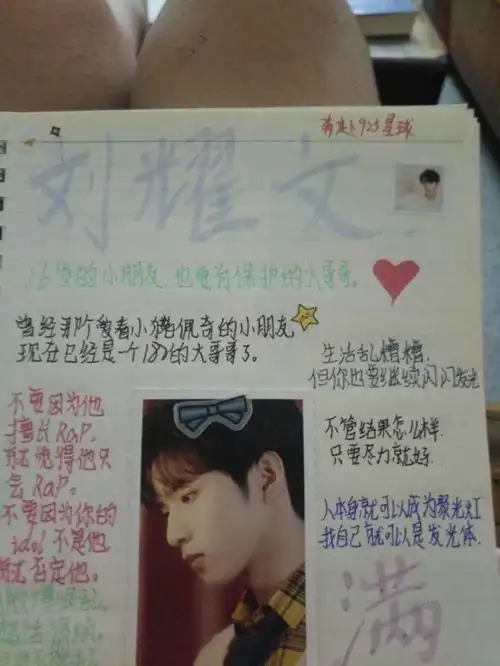 奔走923星球
刘耀文
16岁的小朋友,也要当保护的大哥哥。
曾经那个爱看小猪佩奇的小朋友
现在已经是一个187的大哥哥了。
不要因为他
擅长RaP.
就觉得他只
会RaP。
不要因为你的
idol不是他
就否定他。
生活乱糟糟.
但你也要继续闪闪发光
不管结果怎么样.
只要尽力就好.
人本身就可以成为聚光灯
我自己就可以是发光体.
满